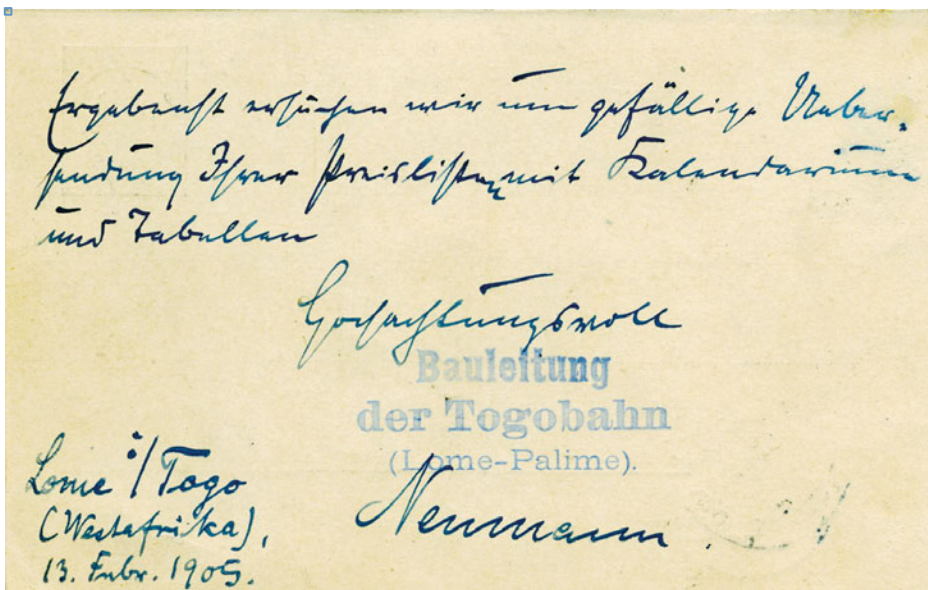 Ergebenst ersuchen wir um gefällige Ueber-
sendung Ihrer Preislisten mit Kalendarium
und Tabellen
Hochachtungsvoll
Bauleitung
der Togobahn
(Lome-Palime).
Neumann
Lome i/Togo
(Westafrika),
13. Febr. 1905.